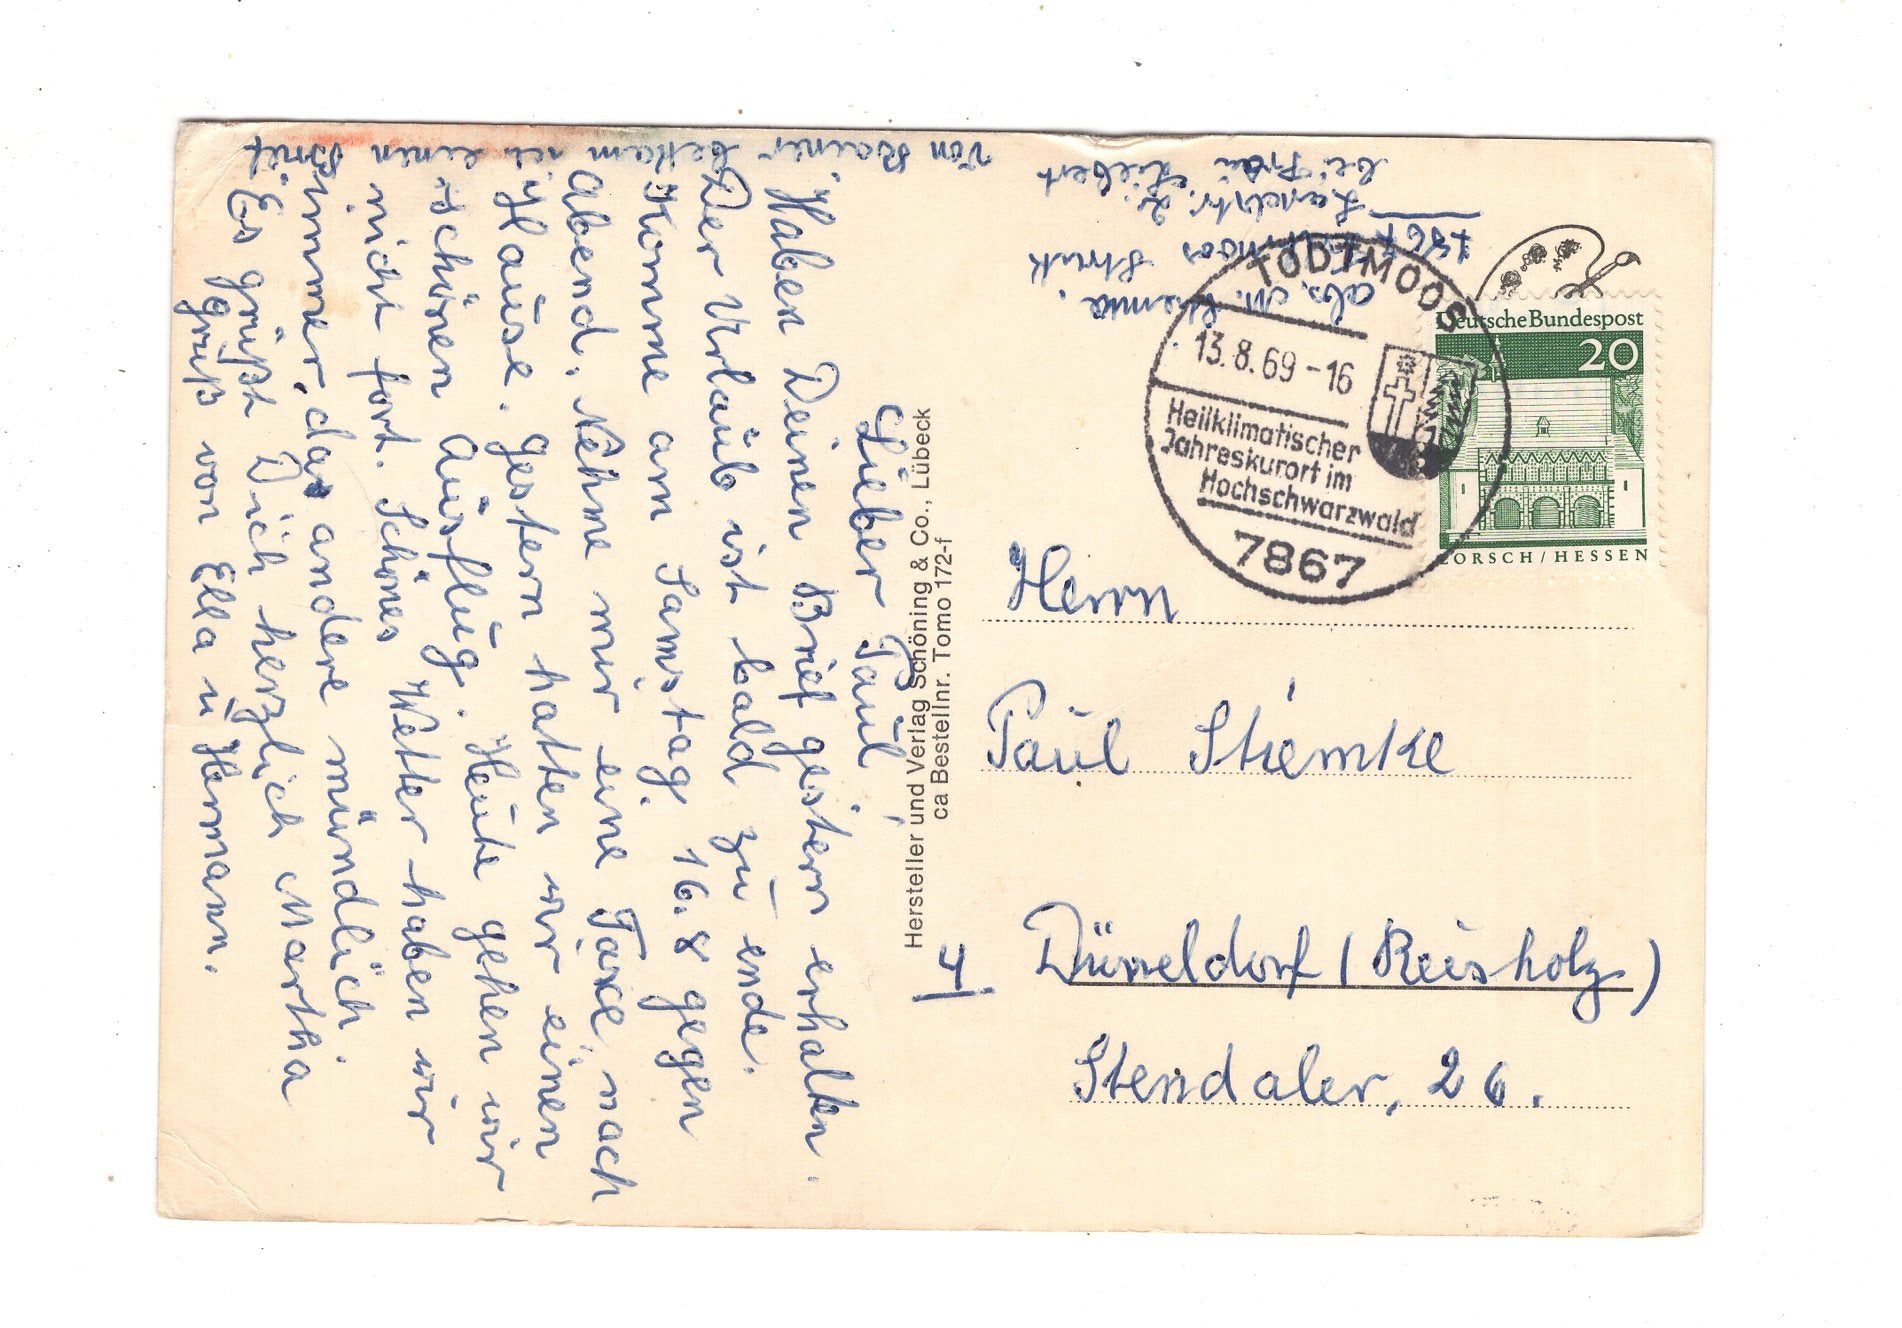 Lieber Paul!
Haben Deinen Brief gestern erhalten.
Der Urlaub ist bald zu ende.
Komme am Samstag. 16. 8 gegen
Abend. Nehme mir eine Taxe, nach
Hause. gestern hatten wir einen
schönen Ausflug. Heute gehen wir
nicht fort. Schönes Wetter haben wir
immer, das andere mündlich.
Es grüßt Dich herzlich Martha
Gruß von Ella u Hermann.
Von Rainer bekam ich einen Brief
abs. M.
Todtmoos
Landstr.
bei Frau Liebert
TODTMOOS
13.8.69-16
Heilklimatischer
Jahreskurort im
Hochschwarzwald
7867
Deutsche Bundespost
20
LORSCH / HESSEN
Hersteller und Verlag Schöning & Co., Lübeck
ca Bestellnr. Tomo 172-f
Herrn
Paul Stiemke
4 Düsseldorf (Reisholz)
Stendaler, 26.